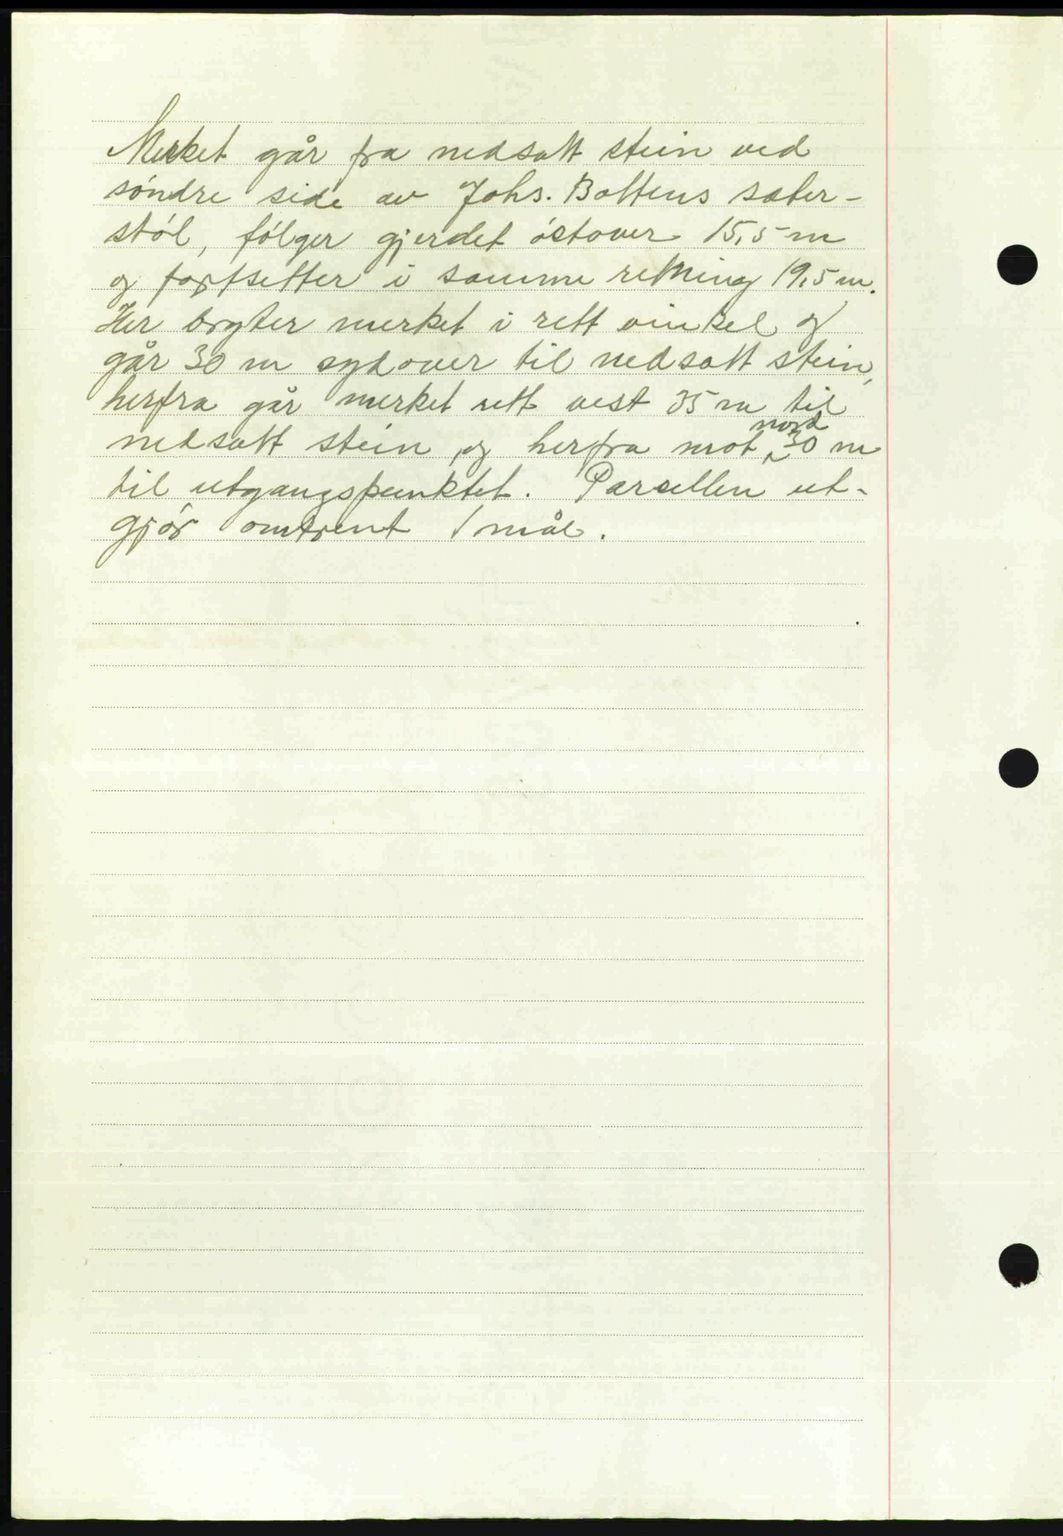 Merket går fra nedsatt stein ved
søndre side av Johs. Boltens sæter-
støl, følger gjerdet østover 15,5 m
og fortsetter i samme retning 19,5 m.
Her bryter merket i rett vinkel og
går 30 m sydover til nedsatt stein,
herfra går merket rett vest 35 m til
nedsatt stein, og herfra mot nord 30 m
til utgangspunktet. Parsellen ut-
gjør omtrent 1 mål.